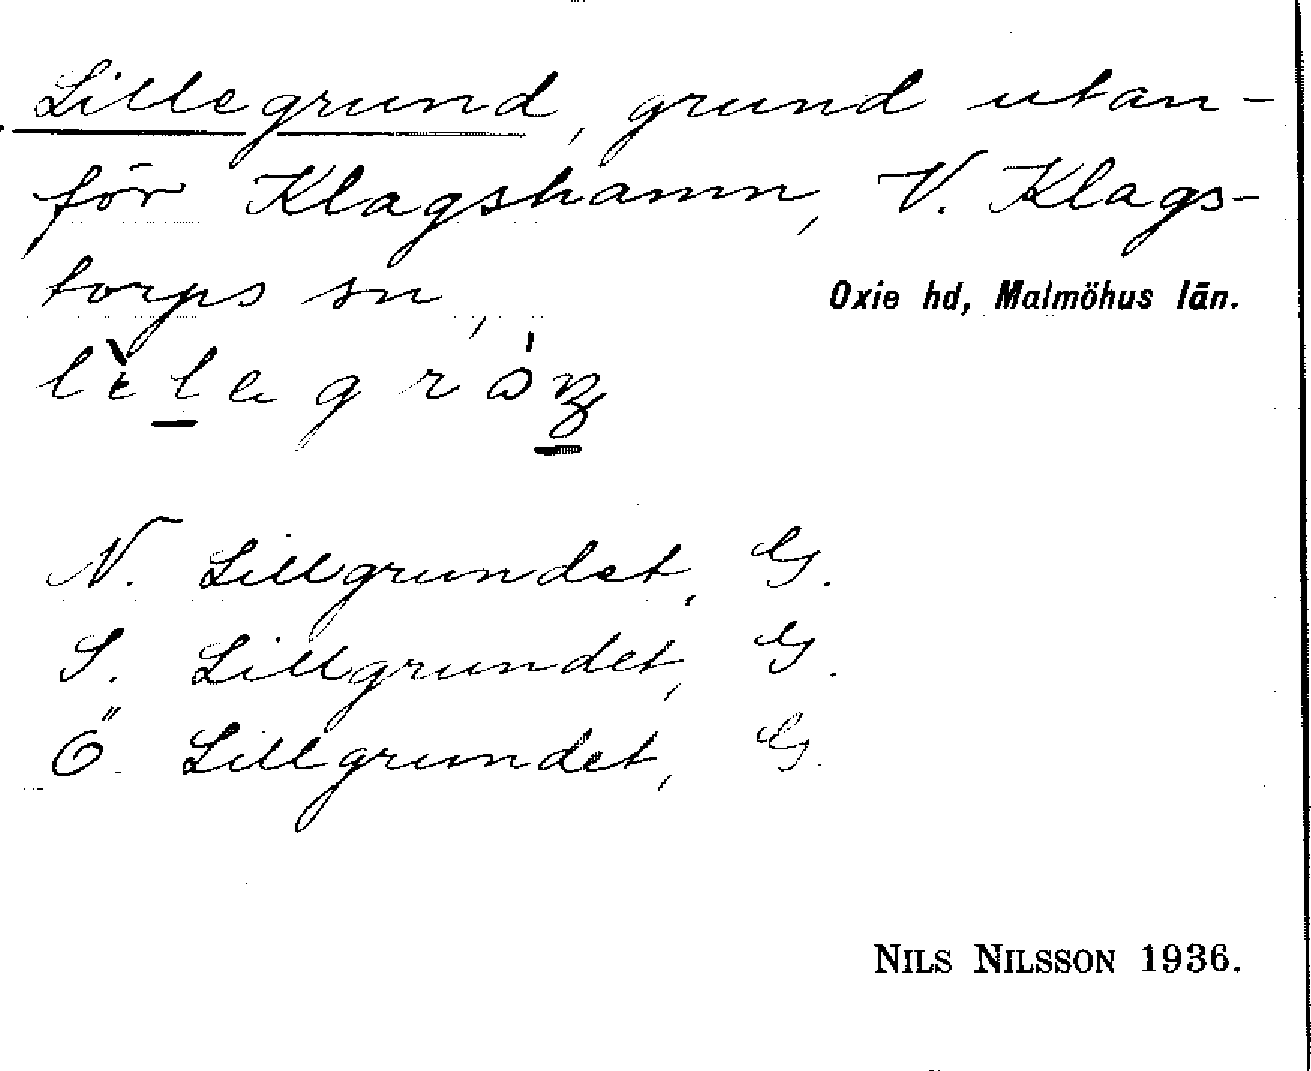 Lillegrund, grund utan-
för Klagshamn, V. Klags-
torps sn,
Oxie hd, Malmöhus län.
N. Lillgrundet, G.
S. Lillgrundet, G.
Ö. Lillgrundet, G.
NILS NILSSON 1936.